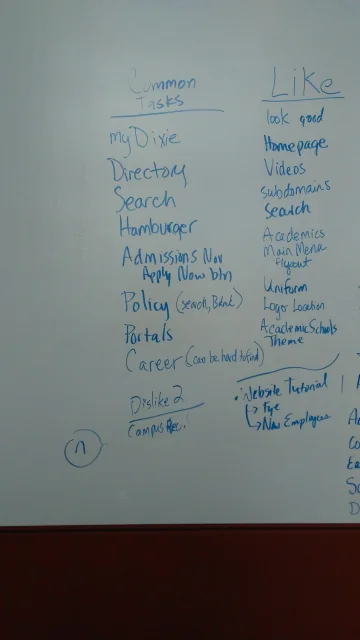 Common
Tasks
myDixie
Directory
Search
Hamburger
Admissions Nav
Apply Now btn
Policy (search, Blank)
Portals
Career (can be hard to find)
Dislike 2
Campus Rec.
n
Like
look good
Homepage
Videos
Subdomains
Search
Academics
Main Menu
flyout
Uniform
Logo Location
Academic Schools
Theme
• Website Tutorial
↳ Fye
↳ New Employees